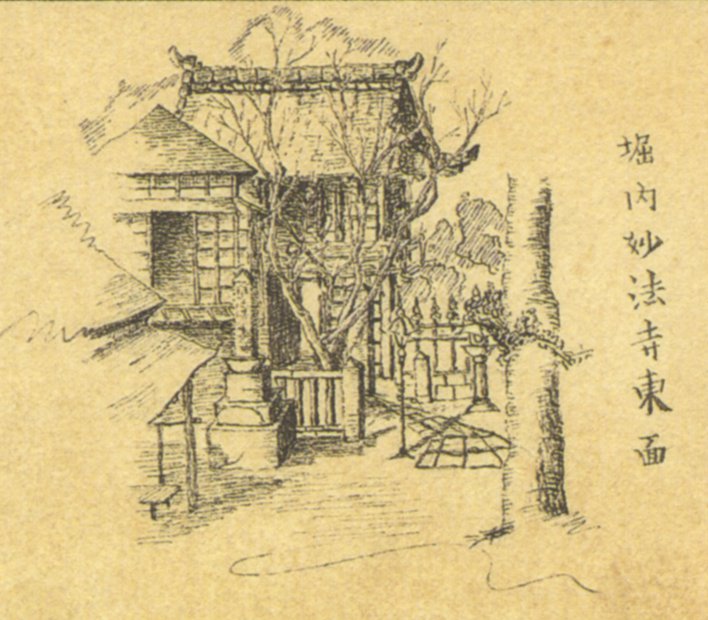 堀内妙法寺東面